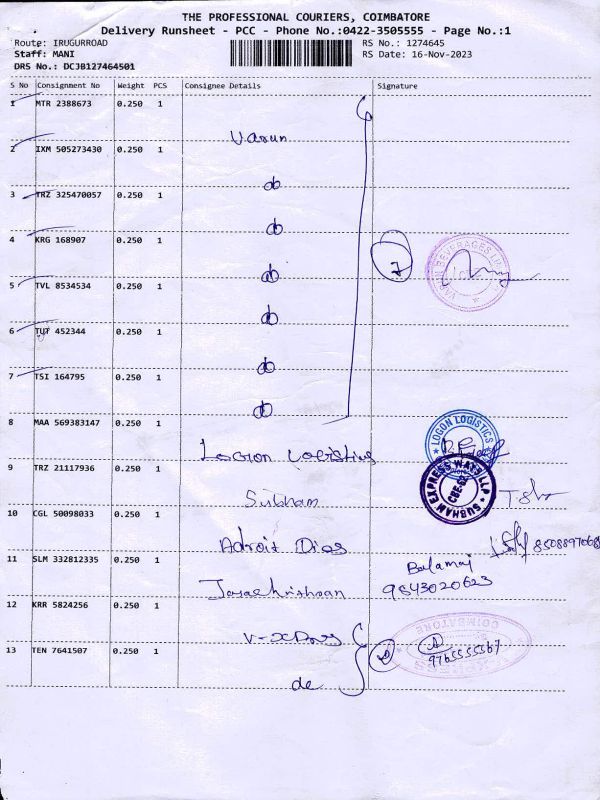 THE PROFESSIONAL COURIERS, COIMBATORE
Delivery Runsheet - PCC - Phone No.:0422-3505555 - Page No.:1
Route: IRUGURROAD RS No.: 1274645
Staff: MANI RS Date: 16-Nov-2023
DRS No.: DCJB127464501
S No Consignment No Weight PCS Consignee Details Signature
1 MTR 2388673 0.250 1
Varun
2 IXM 505273430 0.250 1
do
3 TRZ 325470057 0.250 1
do
4 KRG 168907 0.250 1
do
7
VARUN BEVERAGES
5 TVL 8534534 0.250 1
do
6 TUT 452344 0.250 1
do
7 TSI 164795 0.250 1
do
8 MAA 569383147 0.250 1
Logon Logistics
LOGON LOGISTICS
9 TRZ 21117936 0.250 1
Subham
SUBHAM EXPRESS WAYS LLP
CBE-62
10 CGL 50098033 0.250 1
Adroit Dies
11 SLM 332812335 0.250 1
Jayachristian
Balamaj
9843020623
12 KRR 5824256 0.250 1
V-XPress
COIMBATORE
13 TEN 7641507 0.250 1
do
2
9765555567